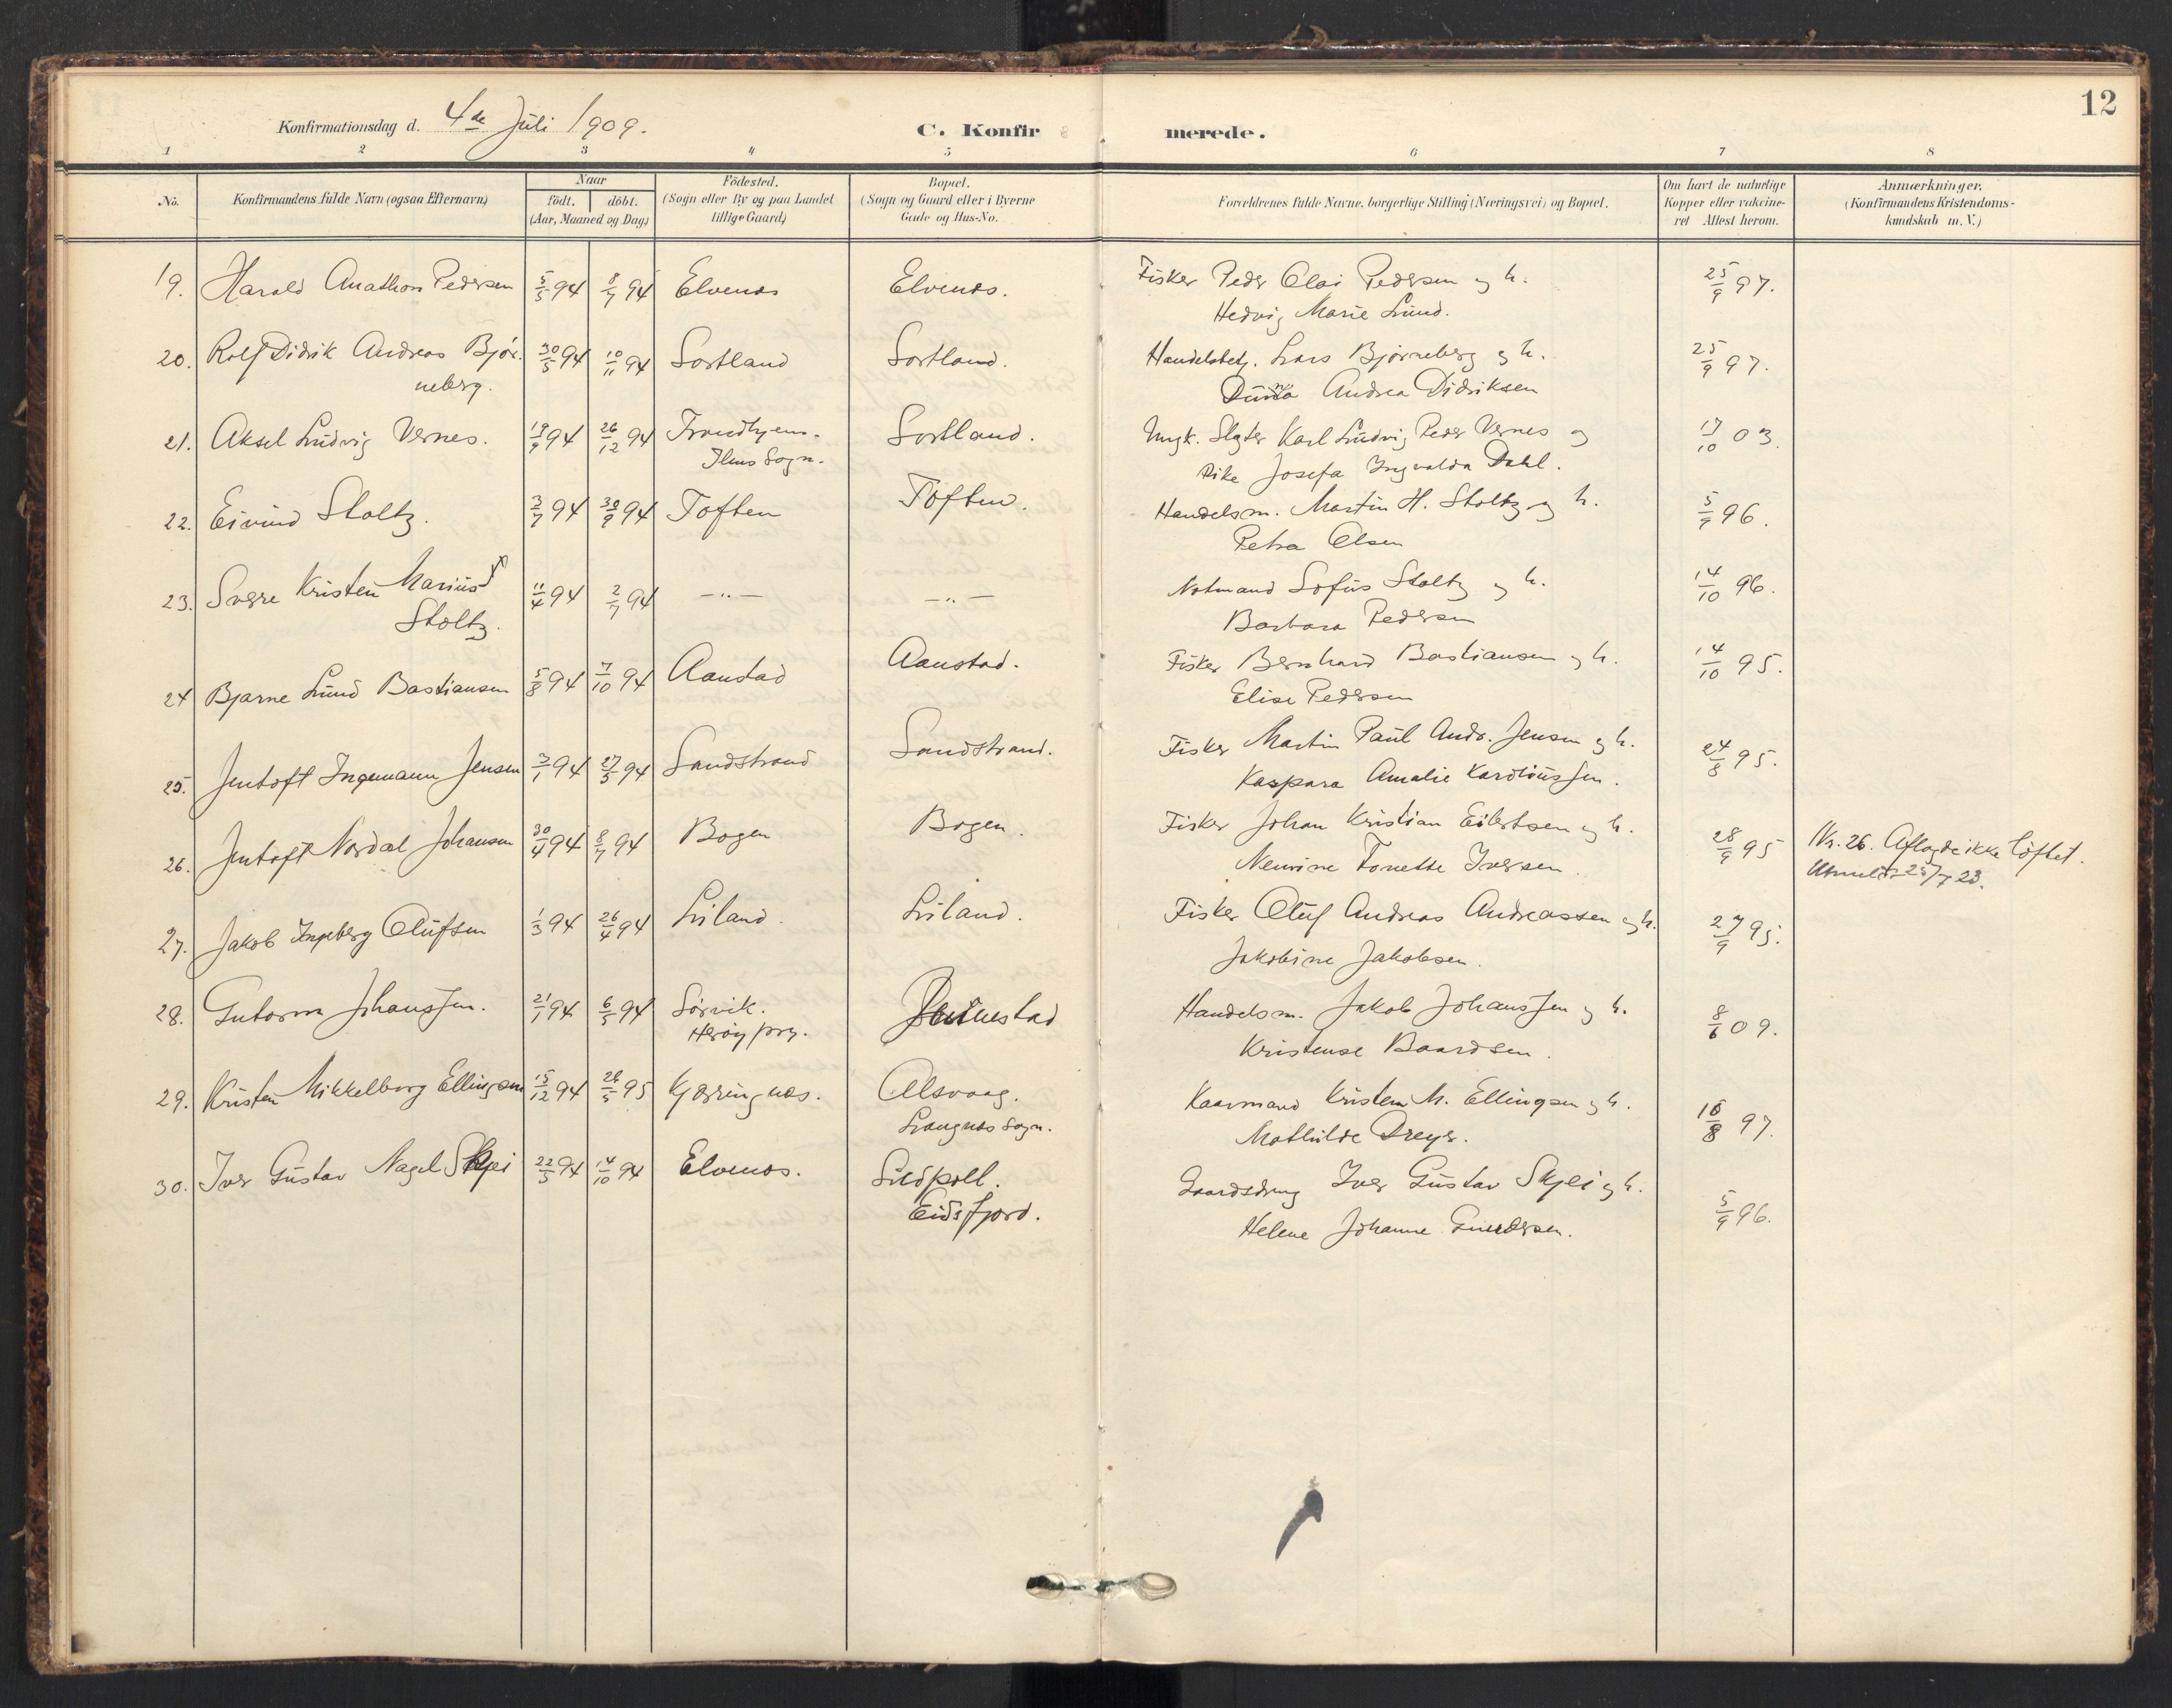 12
Konfirmationsdag d. 4de Juli 1909.
C. Konfirmerede.
1 2 3 4 5 6 7 8
No.
Konfirmandens fulde Navn (ogsaa Efternavn)
Naar
födt. döbt.
(Aar, Maaned og Dag)
Födested.
(Sogn eller By og paa Landet
tillige Gaard)
Bopæl.
(Sogn og Gaard eller i Byerne
Gade og Hus-No.
Forældrenes fulde Navne, borgerlige Stilling (Næringsvei) og Bopæl.
Om havt de naturlige
Kopper eller vakcine-
ret Attest herom.
Anmærkninger.
(Konfirmandens Kristendoms-
kundskab m. V.)
19. Harald Anathon Pedersen 5/5 94 8/7 94 Elvenes Elvenes. Fisker Peder Olai Pedersen og h. 25/9 97.
Hedvig Marie Lund.
20. Rolf Didrik Andreas Bjør- 30/5 94 10/11 94 Sortland Sortland. Handelsbetj. Lars Bjørneberg og h. 25/9 97.
neberg. Andrea Didriksen
21. Aksel Ludvig Vernes. 19/9 94 26/12 94 Trondhjem. Sortland. Ungk. Slagter Karl Ludvig Peder Vernes og 17/10 03.
Ilens Sogn. Pike Josefa Ingvalda Dahl.
22. Eivind Stoltz. 3/7 94 30/9 94 Toften Toften. Handelsm. Martin H. Stoltz og h. 5/9 96.
Petra Olsen
23. Sverre Kristen Marius 11/4 94 2/7 94 —"— —"— Notmand Sofus Stoltz og h. 14/10 96.
Stoltz. Barbara Pedersen
24 Bjarne Lund Bastiansen 5/8 94 7/10 94 Aanstad Aanstad. Fisker Bernhard Bastiansen og h. 14/10 95.
Elise Pedersen
25. Jentoft Ingemann Jensen 3/1 94 27/5 94 Sandstrand Sandstrand. Fisker Martin Paul Andr. Jensen og h. 24/8 95.
Kaspara Amalie Karoliussen.
26. Jentoft Nordal Johansen 30/4 94 8/7 94 Bogen Bogen. Fisker Johan Kristian Eilertsen og h. 28/9 95 Nr. 26. Aflagde ikke löftet.
Tonette Iversen. Utmeldt 25/7 23.
27. Jakob Ingeberg Olufsen 1/3 94 26/4 94 Liland. Liland. Fisker Oluf Andreas Andreassen og h. 27/9 95.
Jakobine Jakobsen.
28. Gutorm Johanssen. 21/1 94 6/5 94 Sørvik. Handelsm. Jakob Johanssen og h. 8/6 09.
Herøy prg. Kristense Baardsen.
29. Kristen Mikkelborg Ellingsen 15/12 94 26/5 95 Kjærringnes. Alsvaag. Kaarmand Kristen M. Ellingsen og h. 16/8 97.
Langnes Sogn. Mathilde Dreyer.
30. Iver Gustav Nagel Skjei 22/5 94 14/10 94 Elvenes. Sildpoll. Gaardsdreng Iver Gustav Skjei og h. 5/9 96.
Eidsfjord. Helene Johanne Gundersen.